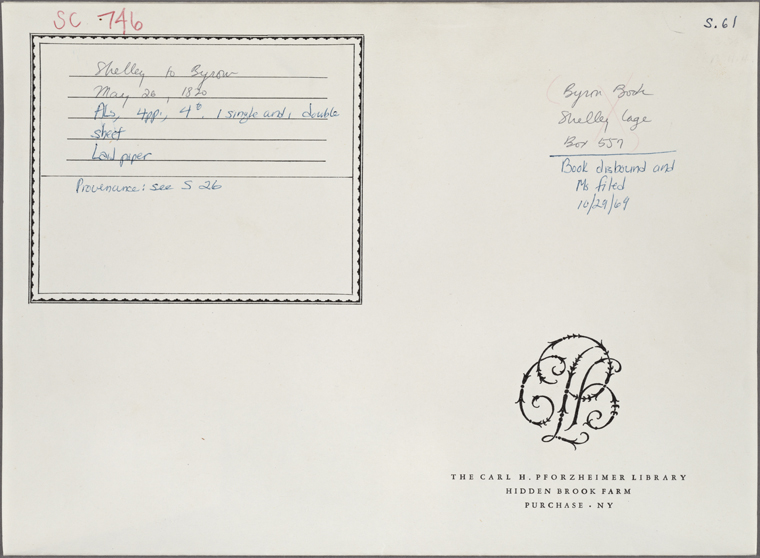 SC 746
S.61
Shelley to Byron
May 26, 1820
ALs, 4pp., 4°. 1 single and 1 double
sheet
Laid paper
Provenance: see S 26
Byron Book
Shelley Cage
Box 557
Book disbound and
Ms filed
10/29/69
THE CARL H. PFORZHEIMER LIBRARY
HIDDEN BROOK FARM
PURCHASE · NY